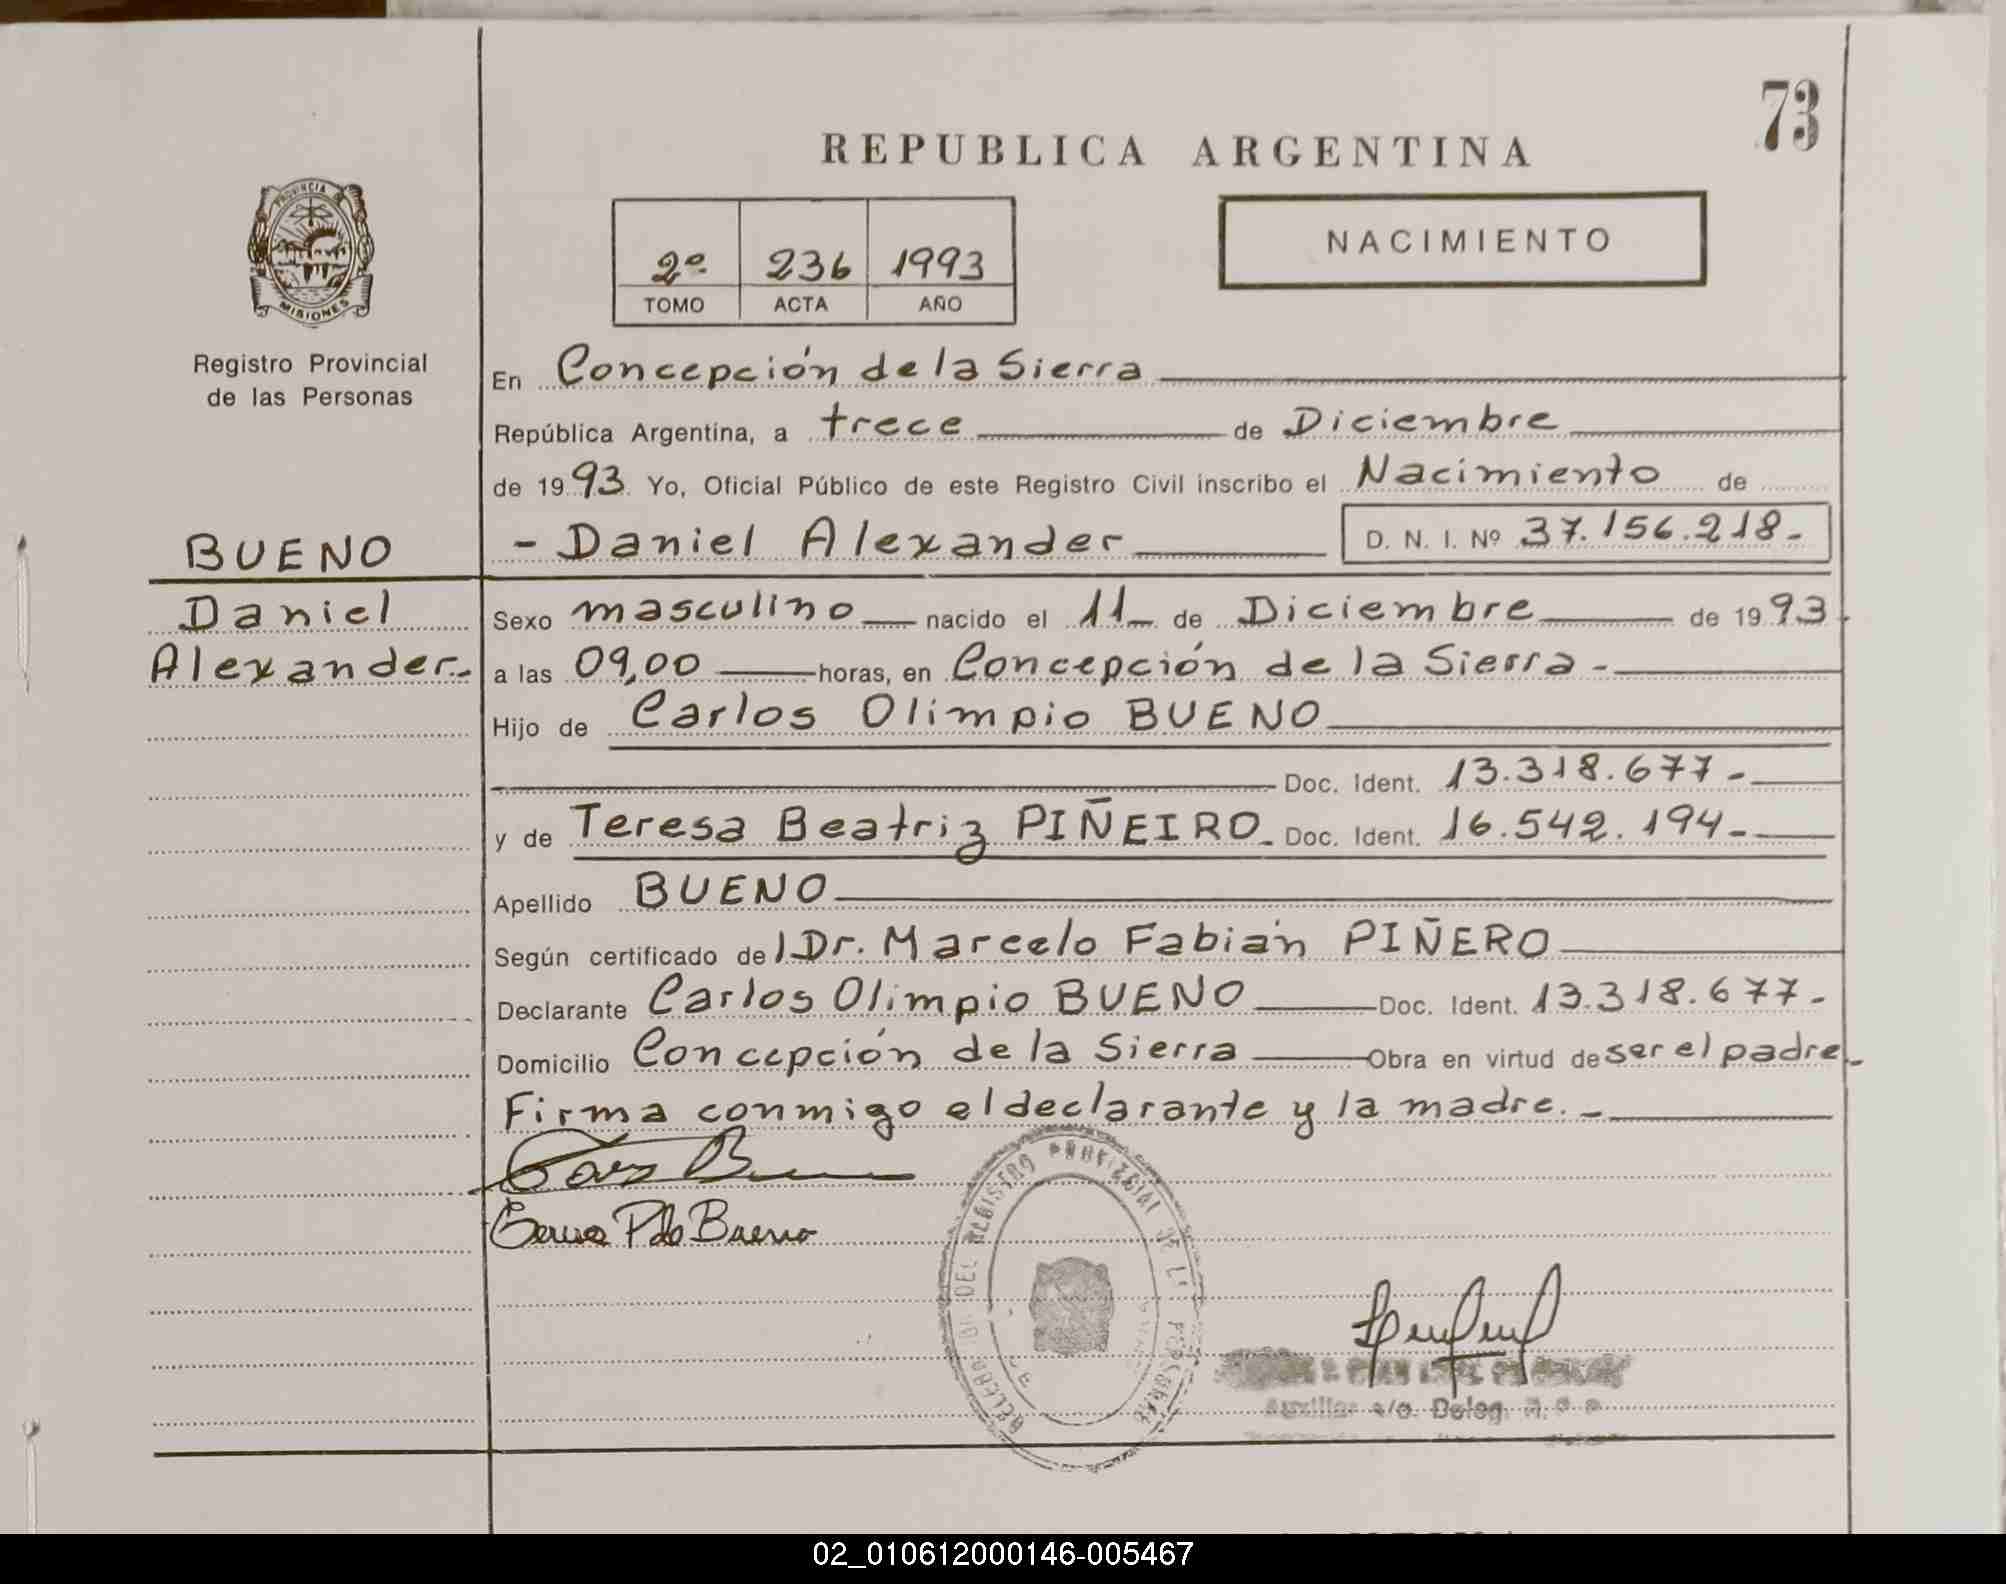 73
REPUBLICA ARGENTINA
PROVINCIA
MISIONES
Registro Provincial
de las Personas
NACIMIENTO
2º 236 1993
TOMO ACTA AÑO
En Concepción de la Sierra
República Argentina, a trece de Diciembre
de 1993. Yo, Oficial Público de este Registro Civil inscribo el Nacimiento de
- Daniel Alexander D. N. I. Nº 37.156.218.-
BUENO
Daniel
Alexander.-
Sexo masculino nacido el 11 de Diciembre de 1993
a las 09,00 horas, en Concepción de la Sierra -
Hijo de Carlos Olimpio BUENO
Doc. Ident. 13.318.677-
y de Teresa Beatriz PIÑEIRO- Doc. Ident. 16.542.194-
Apellido BUENO
Según certificado del Dr. Marcelo Fabián PIÑERO
Declarante Carlos Olimpio BUENO Doc. Ident. 13.318.677-
Domicilio Concepción de la Sierra Obra en virtud de ser el padre-
Firma conmigo el declarante y la madre.-
Bueno
REGISTRO PROVINCIAL DE
Auxiliar a/c. Deleg.
02_010612000146-005467